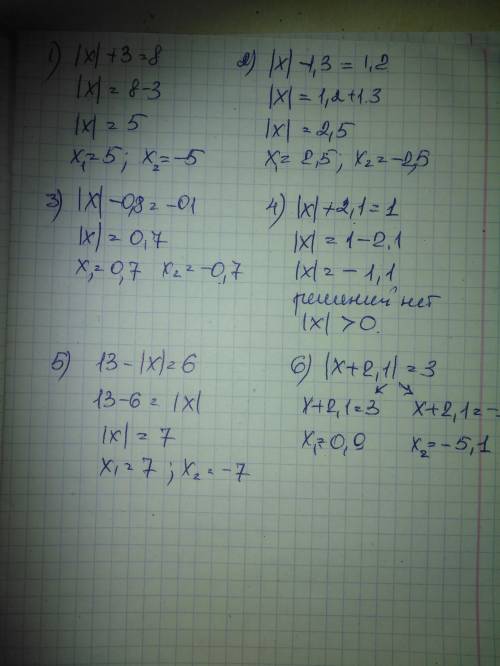 1) |x| + 3 = 8
|x| = 8 - 3
|x| = 5
x₁ = 5 ; x₂ = -5
2) |x| - 1,3 = 1,2
|x| = 1,2 + 1.3
|x| = 2,5
x₁ = 2,5 ; x₂ = -2,5
3) |x| - 0,8 = -0,1
|x| = 0,7
x₁ = 0,7 x₂ = -0,7
4) |x| + 2,1 = 1
|x| = 1 - 2,1
|x| = -1,1
решений нет
|x| > 0.
5) 13 - |x| = 6
13 - 6 = |x|
|x| = 7
x₁ = 7 ; x₂ = -7
6) |x + 2,1| = 3
x + 2,1 = 3 x + 2,1 = -
x₁ = 0,9 x₂ = -5,1